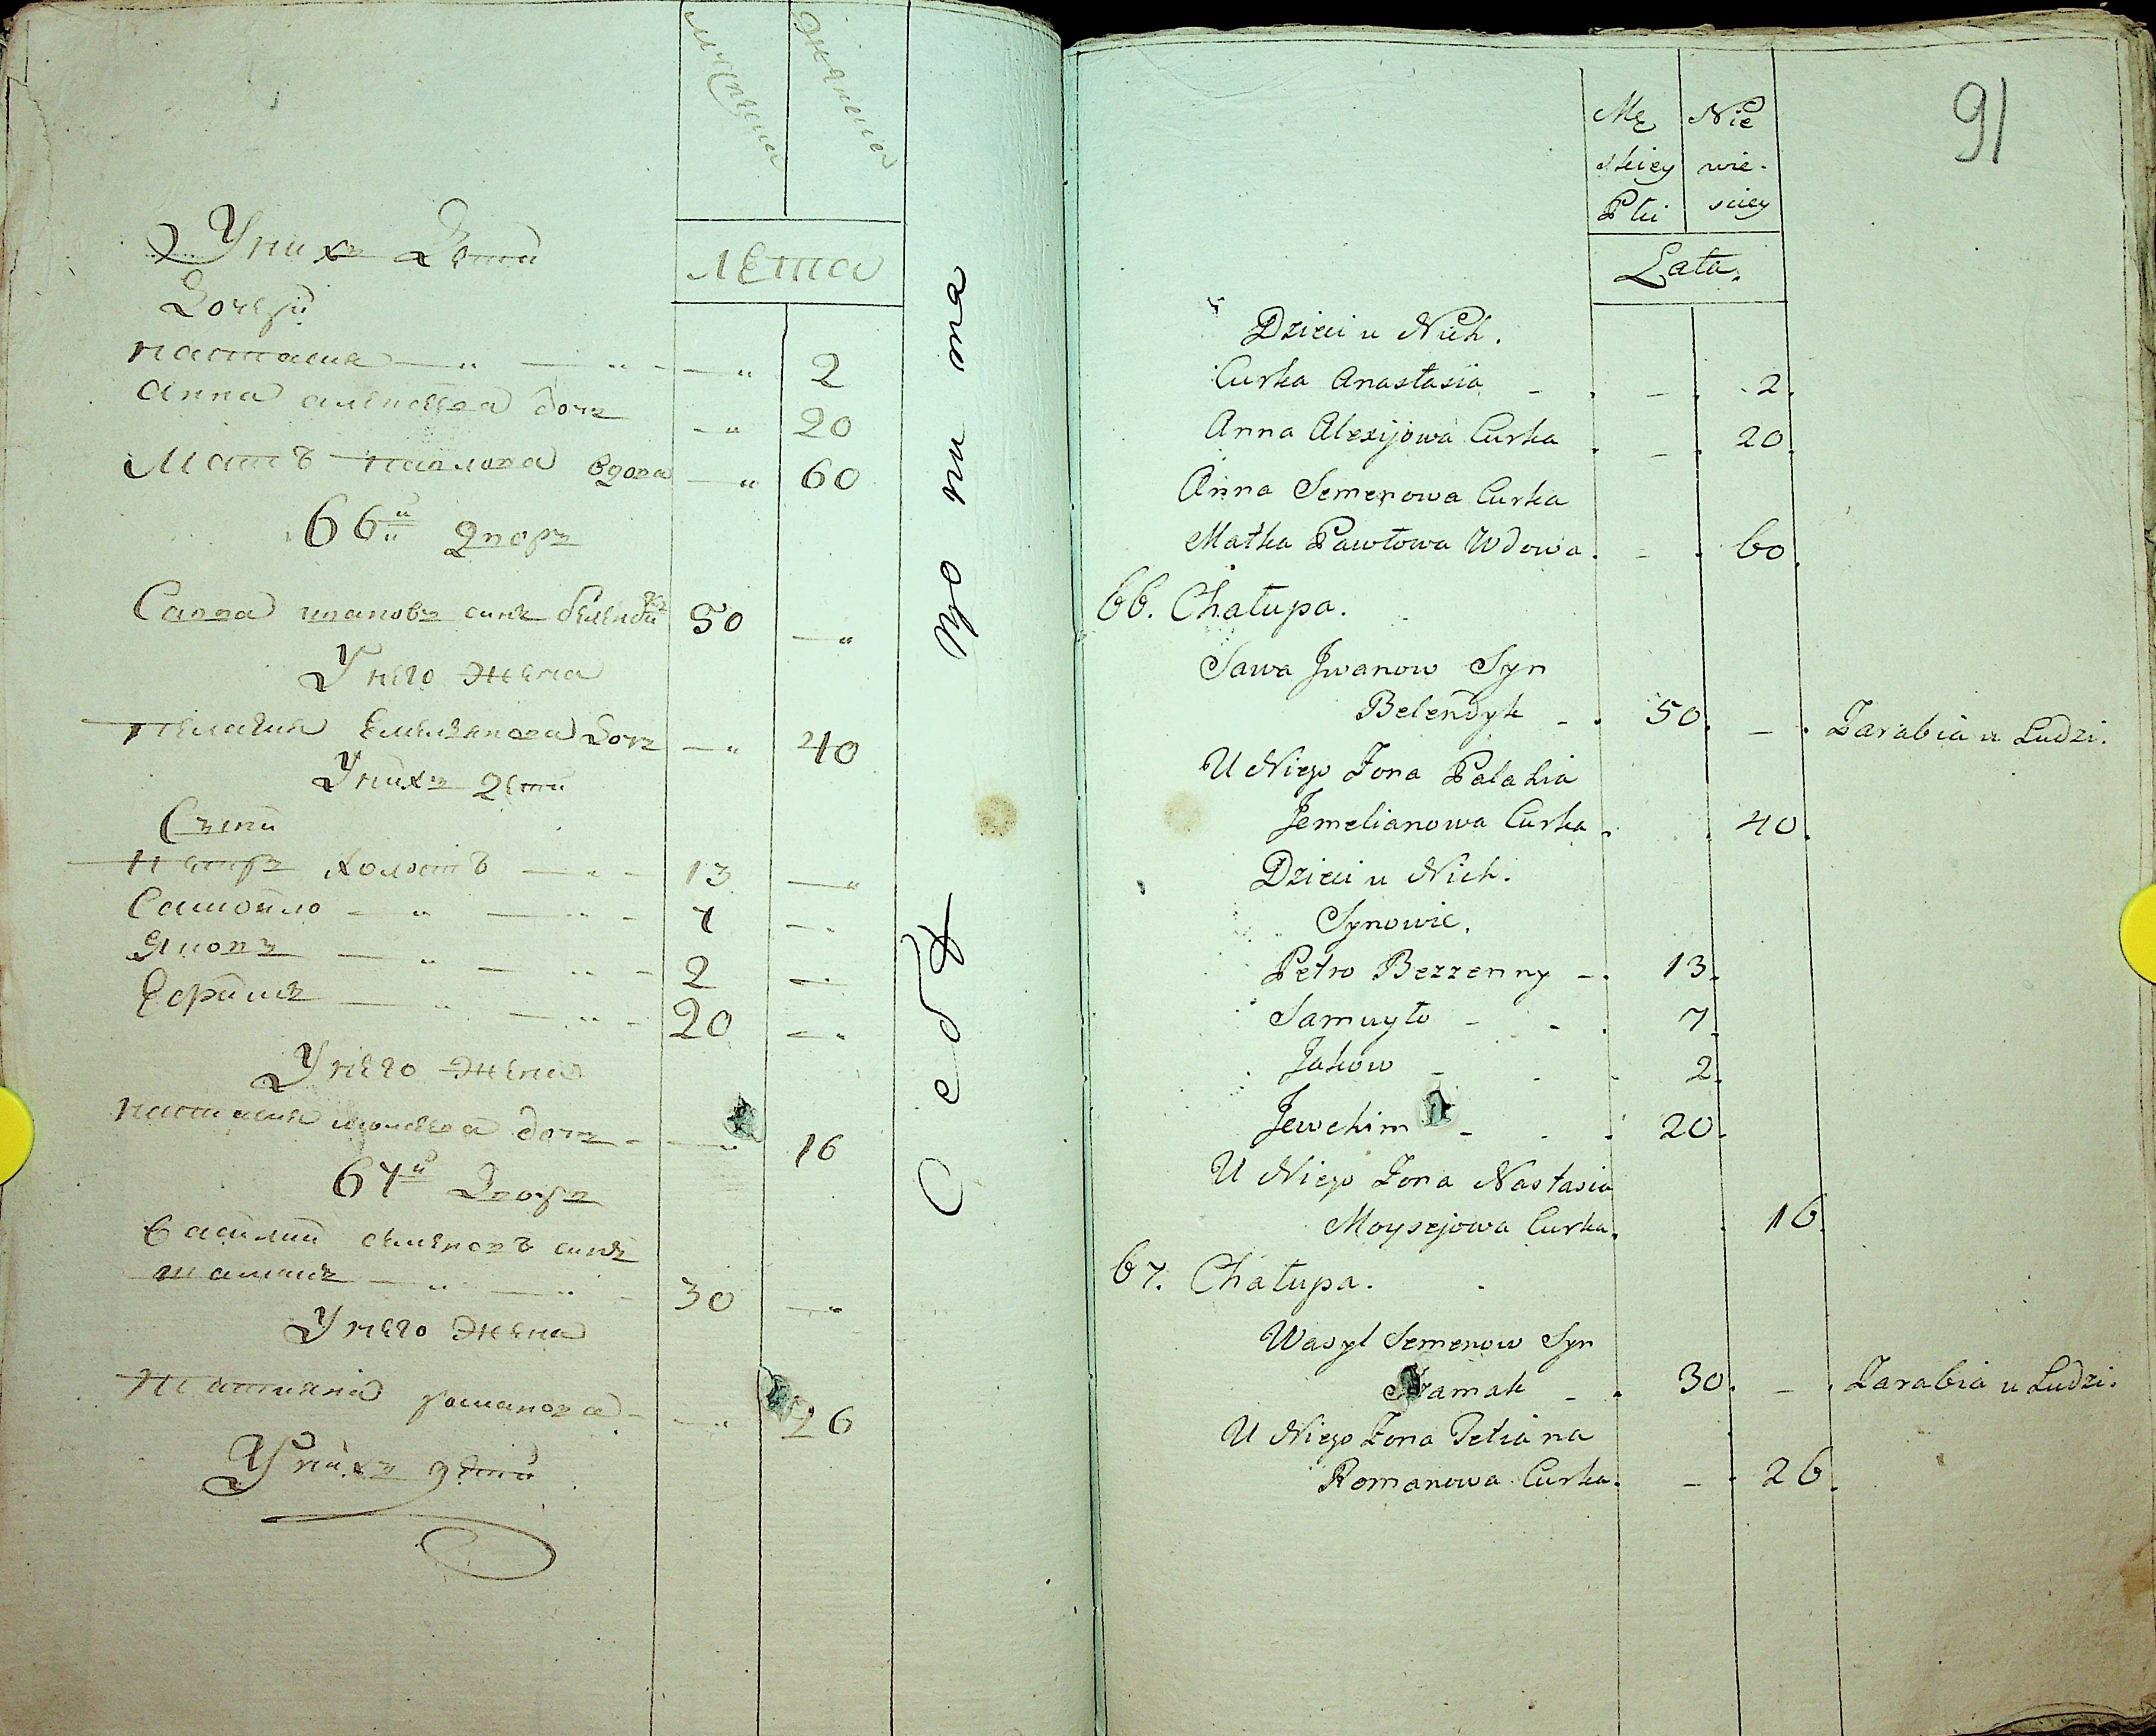 мужеска
женска
лета
У них дети
Дочери
настасия — " — " — " 2
Анна алексеева дочь — " 20
Мать павлова вдова — " 60
66й двор
Савва иванов синъ белендикъ 50 — "
У него жена
пелагия Емельянова дочь — " 40
У них дети
Сыни
петръ холостъ — " — 13 — "
Самойло — " — " — 7 — "
Яковъ — " — " — 2 — "
Ефимъ — " — " — 20 — "
У него жена
настасия моисеева дочь — " 16
67й двор
василий семеновъ синъ
— " — " — 30 — "
У него жена
татияна романова — " 26
У них дети
Mę
skiey
Płci
Nie
wie-
sciey
91
Lata.
Dzieci u Nich.
Curka Anastasia - . - . 2.
Anna Alexijowa Curka . - . 20.
Anna Semenowa Curka
Matka Pawłowa Wdowa . - . 60.
66. Chałupa.
Sawa Jwanow Syn
Belendyk - . 50. - . Zarabia u Ludzi.
U Niego Zona Palahia
Jemelianowa Curka . . 40.
Dzieci u Nich.
Synowie.
Petro Bezzenny - . 13.
Samuyło - - . 7.
Jakow - - . 2.
Jewchim - . . 20.
U Niego Zona Nastasia
Moysejowa Curka. . 16.
67. Chałupa.
Wasyl Semenow Syn
- . 30. - . Zarabia u Ludzi.
U Niego Zona Tetiana
Romanowa Curka. - . 26.